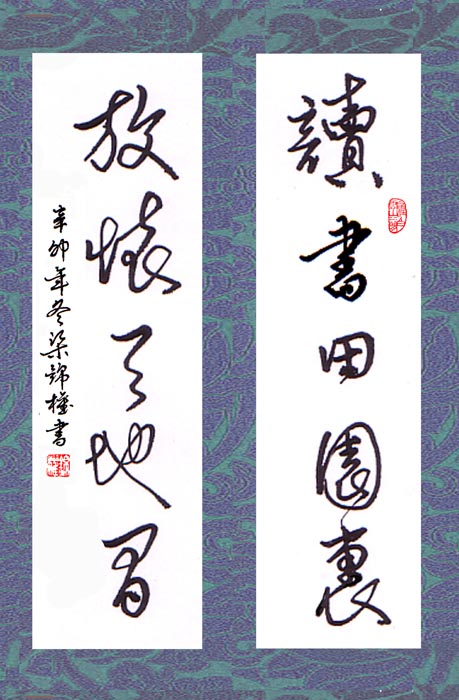 讀書田園裏
放懷天地間
辛卯年冬梁錦權書